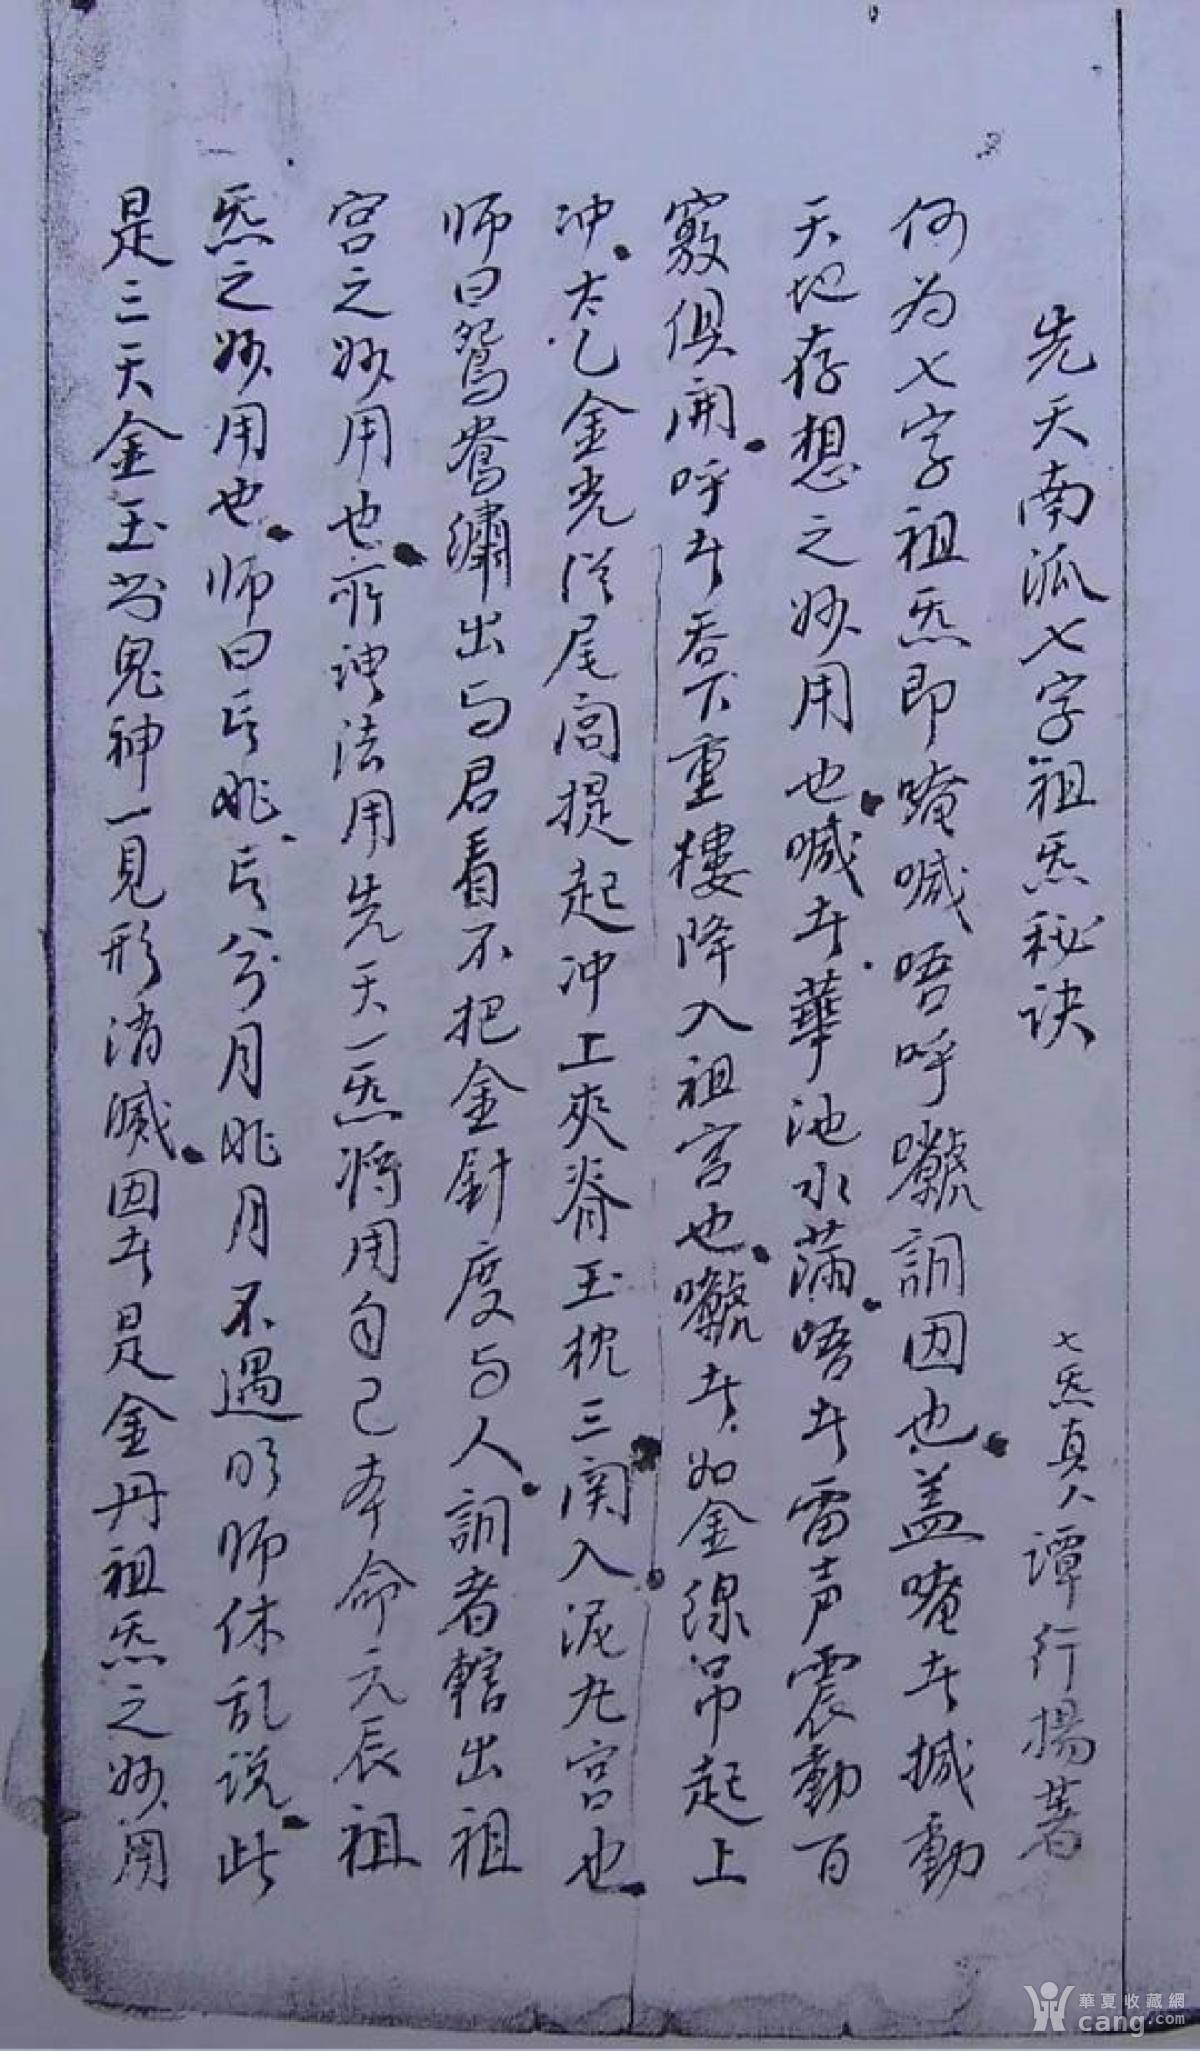 先天南派七字祖炁秘诀
七炁真人谭行揚著
何为七字祖炁即唵喊唔呼訶因也盖唵者撼動
天地存想之妙用也喊者華池水满唔者雷声震動百
竅俱開呼者吞下重樓降入祖宫也者如金線吊起上
冲太乙金光從尾闾提起冲上夾脊玉枕三関入泥丸宫也
师曰鸳鸯繡出与君看不把金針度与人訶者轄出祖
宫之妙用也所谓法用先天一炁将用自己本命元辰祖
炁之妙用也师曰兮月月不遇明师休乱说此
是三天金玉鬼神一見形消滅因者是金丹祖炁之妙用
華夏收藏網
cang.com